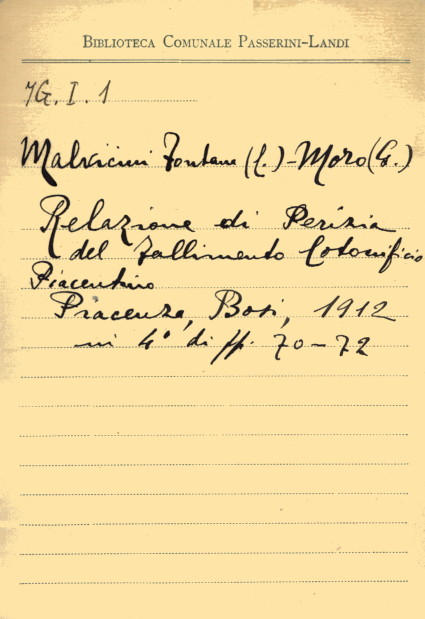 BIBLIOTECA COMUNALE PASSERINI-LANDI
7G. I. 1
Malvicini Fontana (C.) - Moro (G.)
Relazione di Perizia
del Fallimento Cotonificio
Piacentino
Piacenza, Bosi, 1912
in 4° di pp. 70-72